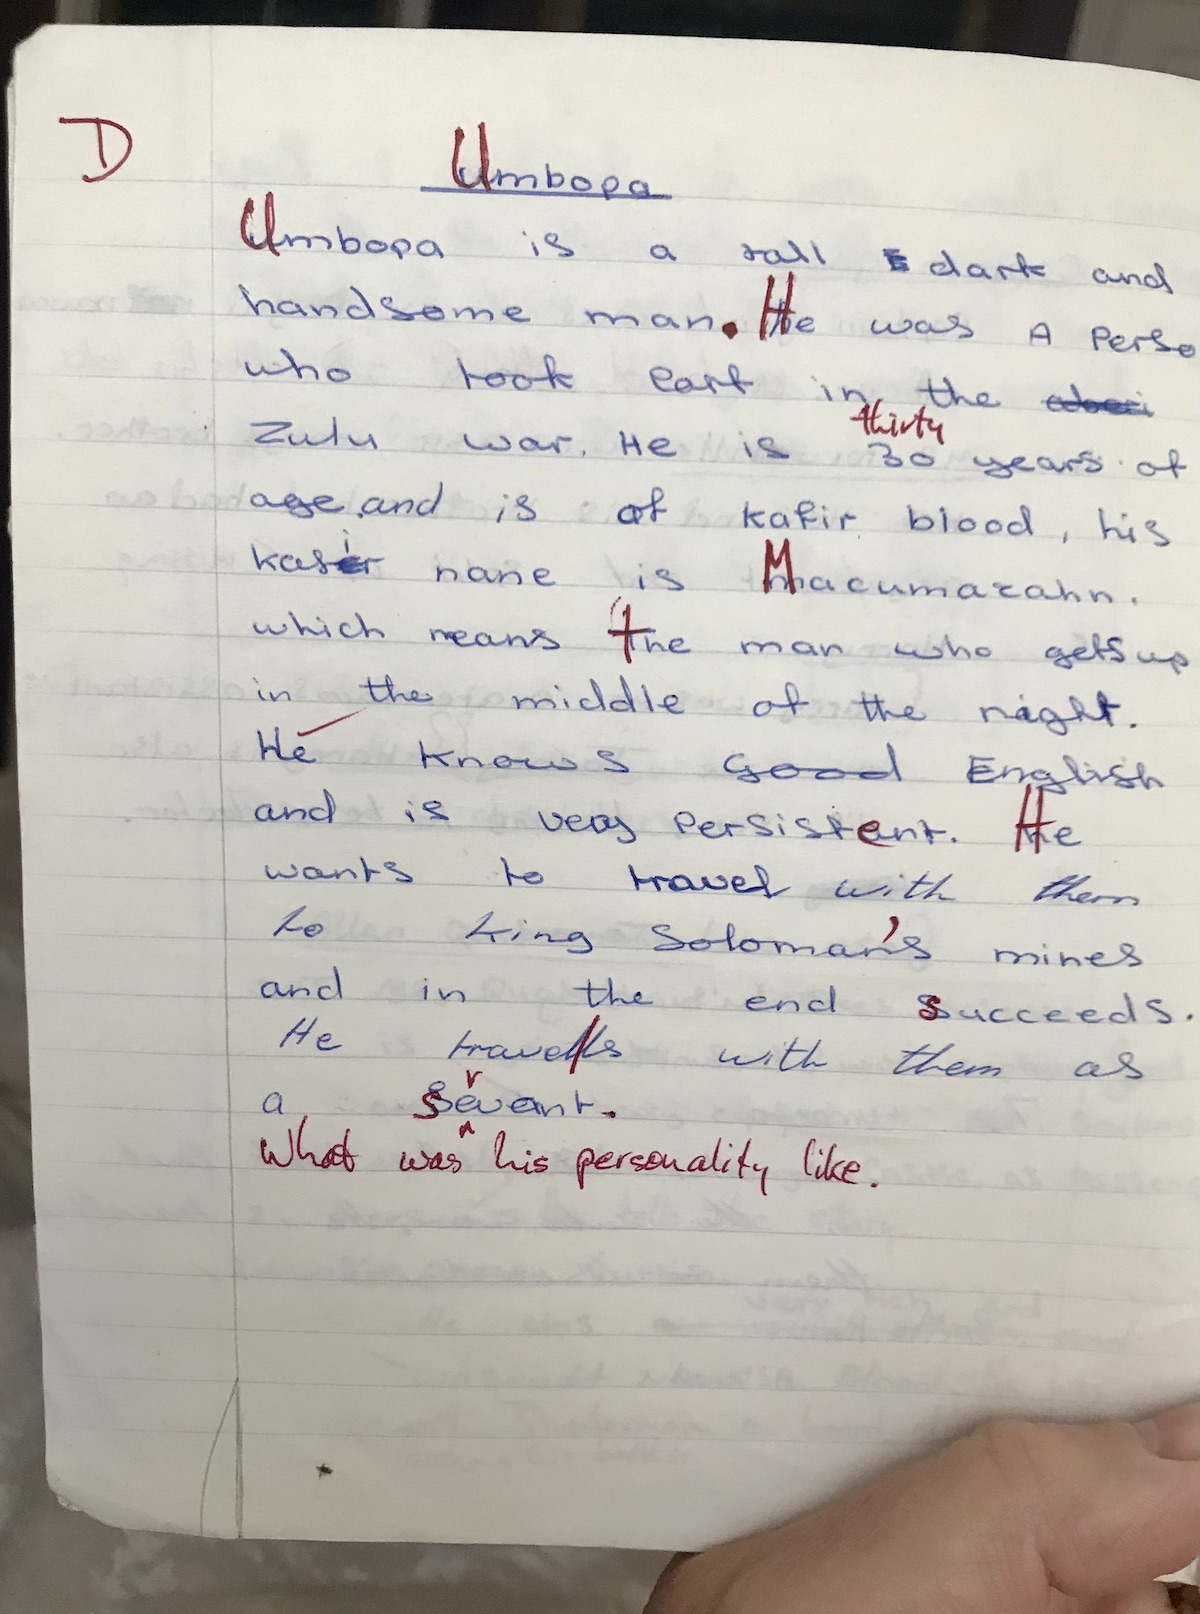 D
Umbopa
Umbopa is a tall dark and
handsome man. He was A Perso
who took Part in the
Zulu war. He is thirty 30 years of
age and is of kafir blood, his
kasir name is Macumazahn.
which means the man who gets up
in the middle of the night.
He knows Good English
and is very Persistent. He
wants to travel with them
to king Soloman's mines
and in the end Succeeds.
He travells with them as
a Servant.
What was his personality like.